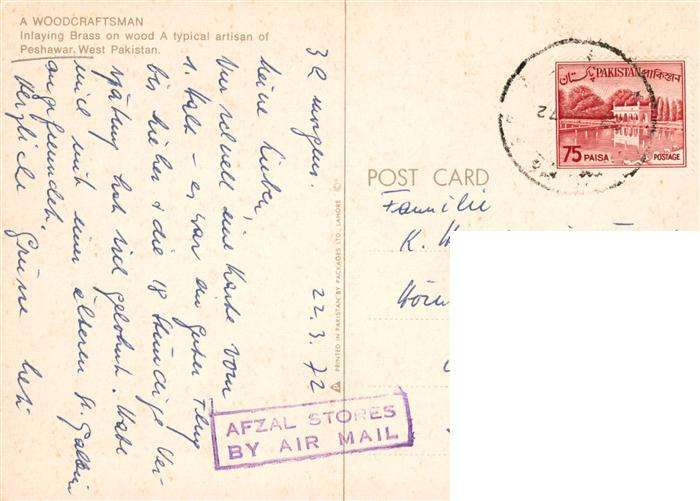 A WOODCRAFTSMAN
Inlaying Brass on wood A typical artisan of
Peshawar. West Pakistan.
22.3.72
Meine Lieben,
Nur schnell eine Karte vom
1. Halt – es war ein guter Flug
bis hierher & die 18 stündige Ver-
spätung hat sich gelohnt. Habe
mich mit einer älteren St. Gallerin
angefreundet.
Herzliche Grüsse
PRINTED IN PAKISTAN BY PACKAGES LTD., LAHORE
POST CARD
Familie
K.
پاکستان PAKISTAN পাকিস্তান
75 PAISA POSTAGE
72
AFZAL STORES
BY AIR MAIL